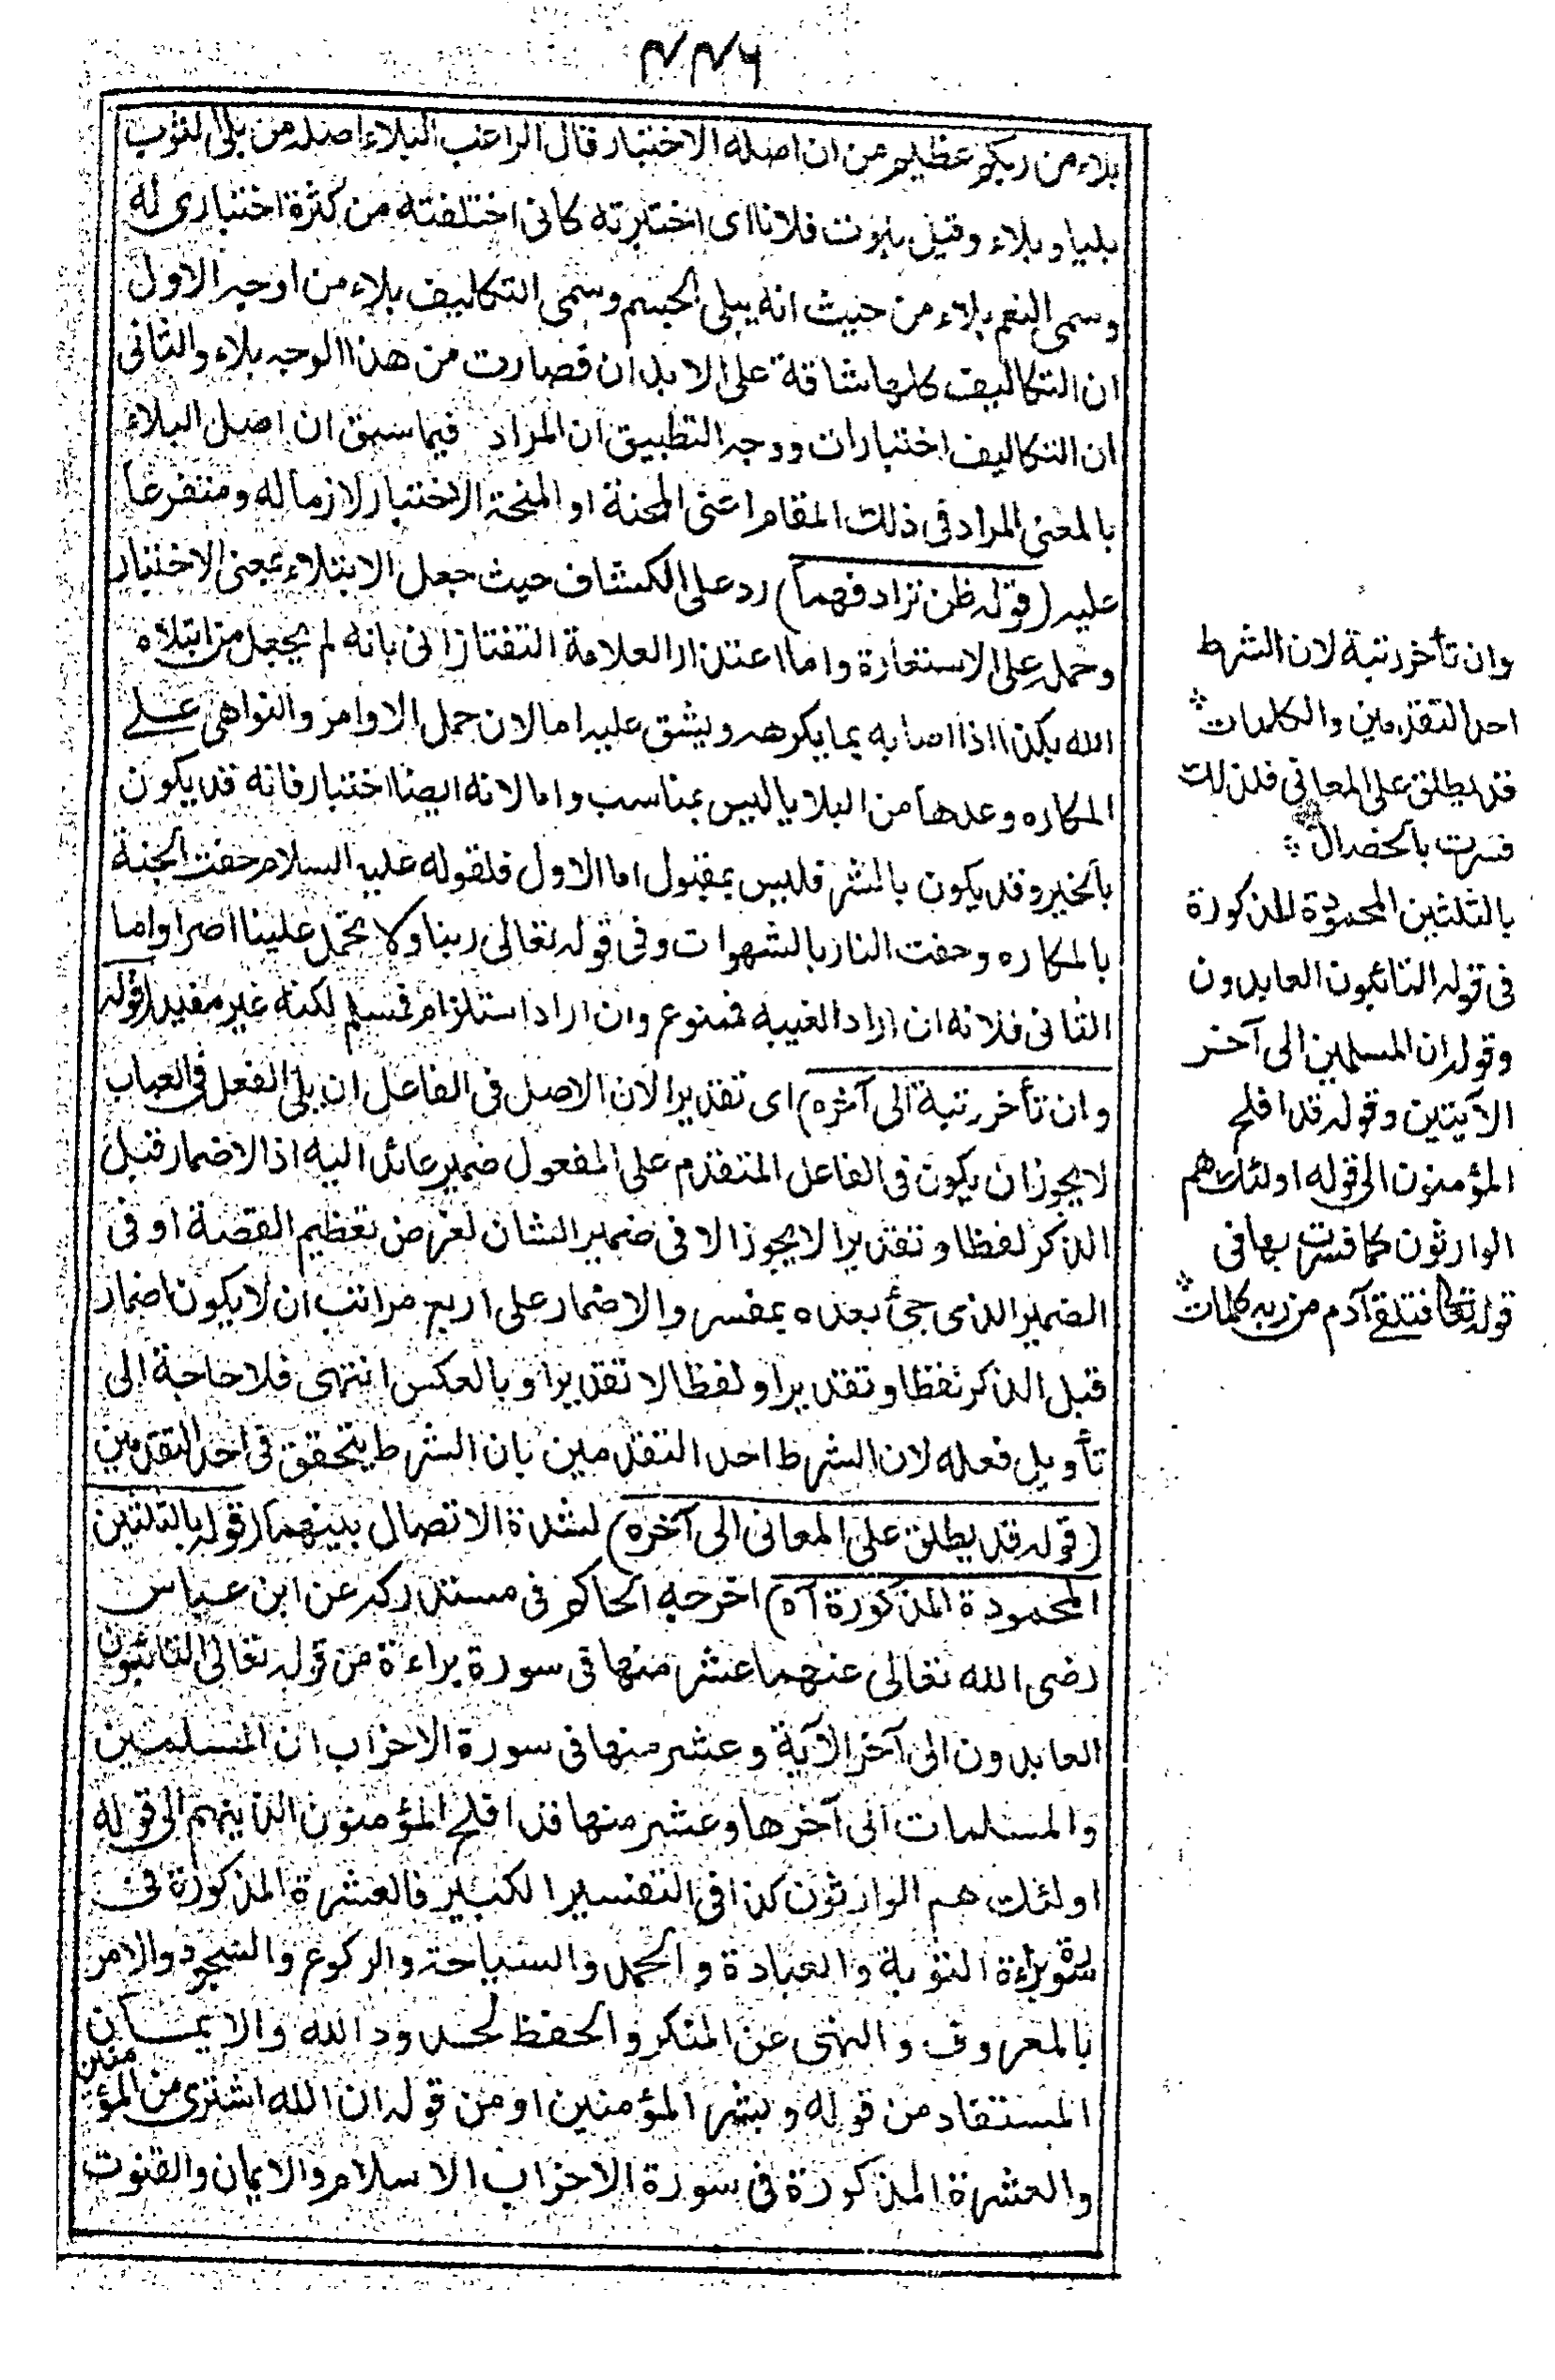 ٤٤٦
بلاء من ربكم عظيم من ان اصله الاختبار قال الراغب البلاء اصله من بلى الثوب
بليا وبلاء وقيل بلوت فلانا اى اختبرته كانى اختلفته من كثرة اختبارى له
وسمى الغم بلاء من حيث انه يبلى الجسم وسمى التكليف بلاء من اوجه الاول
ان التكاليف كلها شاقة على الابدان فصارت من هذا الوجه بلاء والثانى
ان التكاليف اختبارات ووجه التطبيق ان المراد فيما سبق ان اصل البلاء
بالمعنى المراد فى ذلك المقام اعنى المحنة او المنحة الاختبار لازما له ومتفرعا
عليه (قوله ظن ترادفهما) رد على الكشاف حيث جعل الابتلاء بمعنى الاختبار
وحمله على الاستعارة واما اعتذار العلامة التفتازانى بانه لم يجعل من ابتلاه
الله بكذا اذا اصابه بما يكرهه ويشق عليه اما لان حمل الاوامر والنواهى على
المكاره وعدها من البلايا ليس بمناسب واما لانه ايضا اختبار فانه قد يكون
بالخير وقد يكون بالشر فليس بمقبول اما الاول فلقوله عليه السلام حفت الجنة
بالمكاره وحفت النار بالشهوات وفى قوله تعالى ربنا ولا تحمل علينا اصرا واما
الثانى فلانه ان اراد العينية فممنوع وان اراد استلزام فمسلم لكنه غير مفيد (قوله
وان تأخر رتبة الى آخره) اى تقديرا لان الاصل فى الفاعل ان يلى الفعل فى العباب
لا يجوز ان يكون فى الفاعل المتقدم على المفعول ضمير عائد اليه اذ الاضمار قبل
الذكر لفظا وتقديرا لا يجوز الا فى ضمير الشان لغرض تعظيم القصة او فى
الضمير الذى جئ بعده بمفسر والاضمار على اربع مراتب ان لا يكون اضمار
قبل الذكر لفظا وتقديرا ولفظا لا تقديرا وبالعكس انتهى فلا حاجة الى
تأويل فعله لان الشرط احد التقدمين بان الشرط يتحقق فى احد التقدمين
(قوله قد يطلق على المعانى الى آخره) لشدة الاتصال بينهما (قوله بالثلثين
المحمودة المذكورة آه) اخرجه الحاكم فى مستدركه عن ابن عباس
رضى الله تعالى عنهما عشر منها فى سورة براءة من قوله تعالى التائبون
العابدون الى آخر الآية وعشر منها فى سورة الاحزاب ان المسلمين
والمسلمات الى آخرها وعشر منها قد افلح المؤمنون الذينهم الى قوله
اولئك هم الوارثون كذا فى التفسير الكبير فالعشرة المذكورة فى
سورة براءة التوبة والعبادة والحمد والسياحة والركوع والسجود والامر
بالمعروف والنهى عن المنكر والحفظ لحدود الله والايمان
المستفاد من قوله وبشر المؤمنين او من قوله ان الله اشترى من المؤمنين
والعشرة المذكورة فى سورة الاحزاب الاسلام والايمان والقنوت
وان تأخر رتبة لان الشرط
احد التقدمين والكلمات
قد يطلق على المعانى فلذلك
فسرت بالخصال
بالثلثين المحمودة المذكورة
فى قوله التائبون العابدون
وقوله ان المسلمين الى آخر
الآيتين وقوله قد افلح
المؤمنون الى قوله اولئك هم
الوارثون كما فسرت بها فى
قوله تعالى فتلقى آدم من ربه كلمات